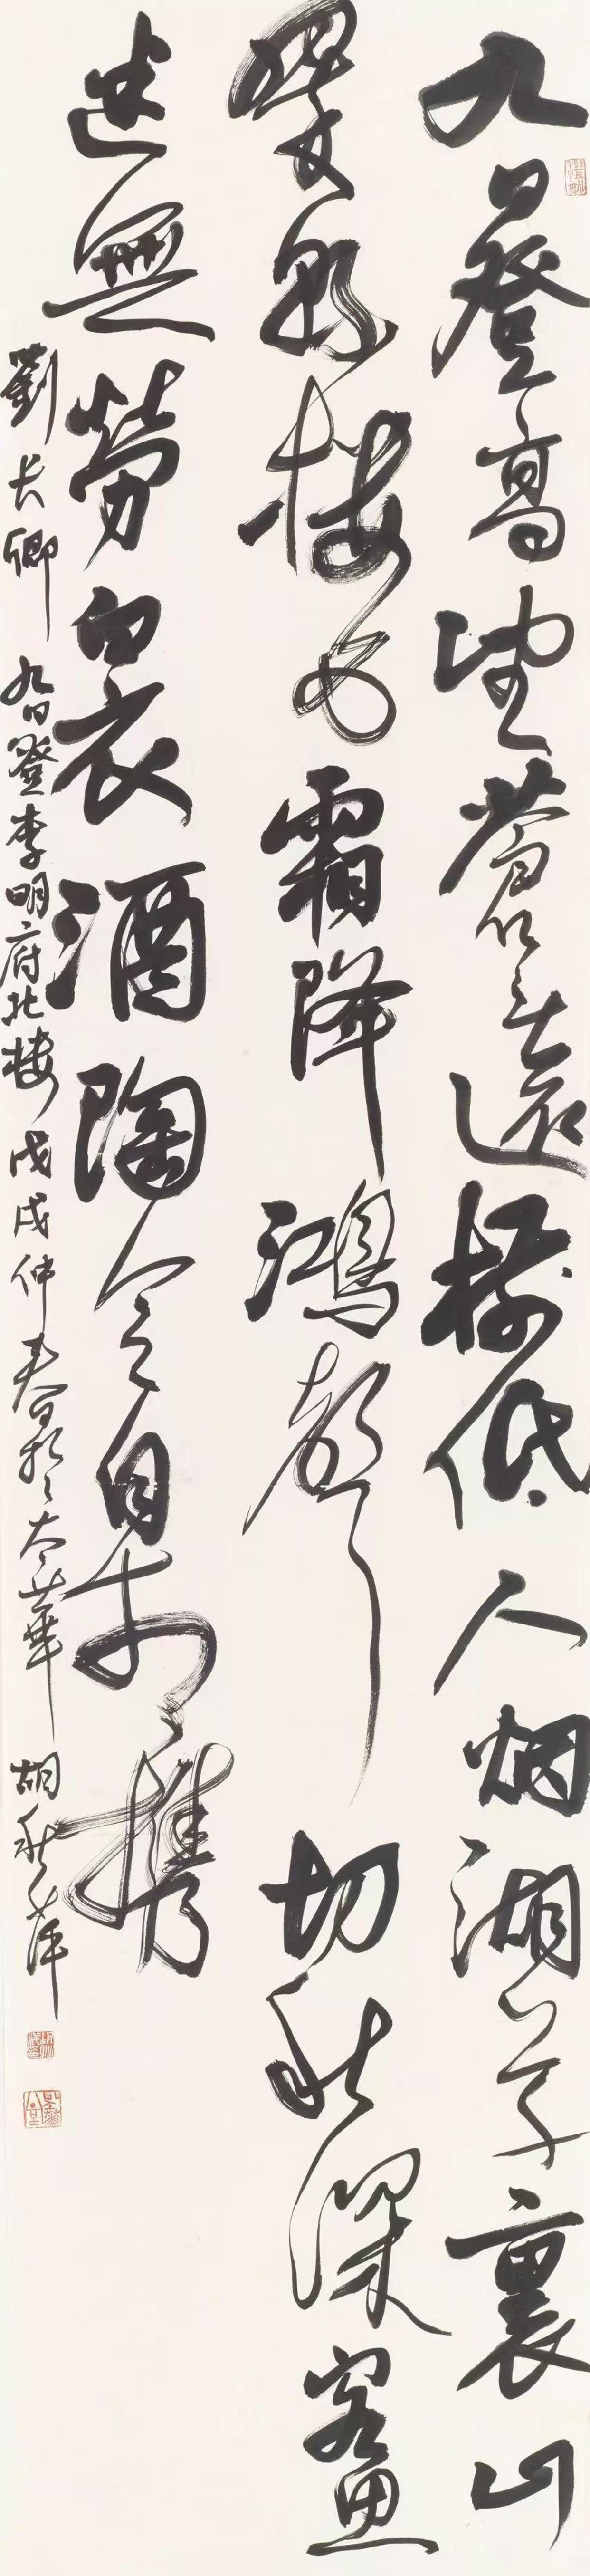 九日登高望蒼蒼遠樹低人烟湖草裏山
翠縣樓西霜降鴻聲切秋深客思
迷無勞白衣酒陶令自相携
劉長卿九日登李明府北樓戊戌仲春太華胡秋萍